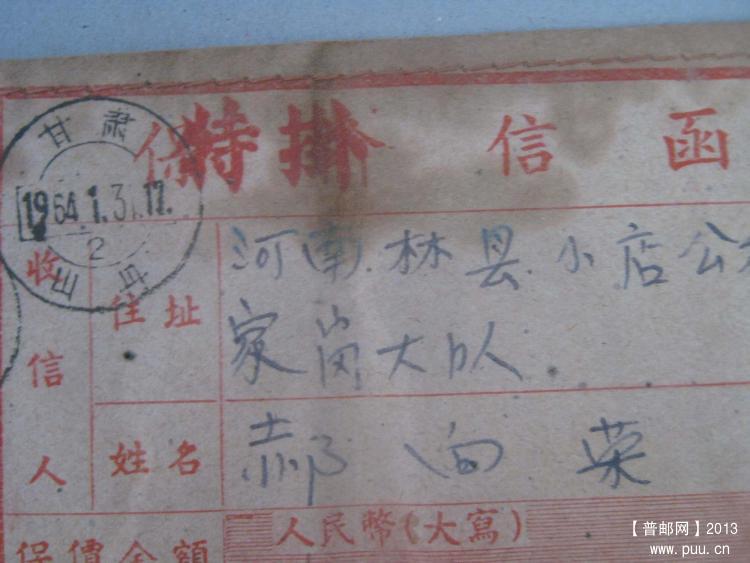 甘肃
1964.1.31.17.
2
特掛 信函
收信人
住址
河南.林县.小店公
家岗大队.
姓名
郝向荣
人民幣(大寫)
保價金額
【普邮网】2013
www.puu.cn